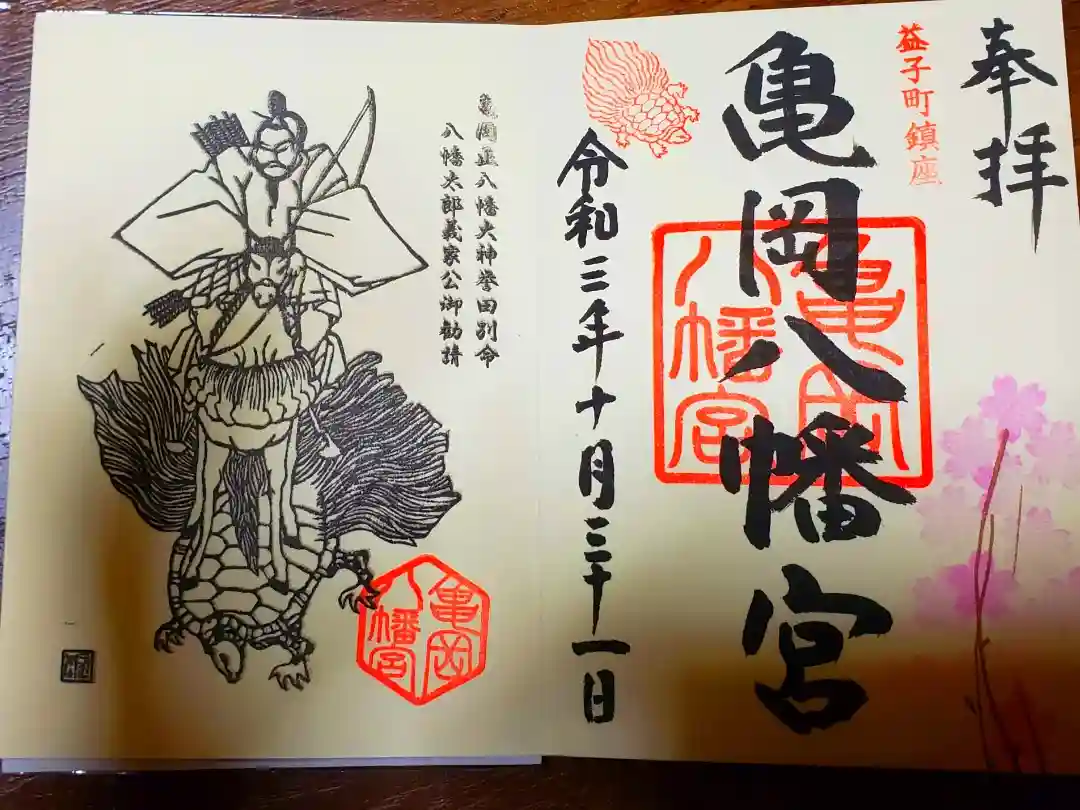 奉拝
益子町鎮座
亀岡八幡宮
亀岡
八幡宮
令和三年十月三十一日
亀岡正八幡大神誉田別命
八幡太郎義家公御勧請
亀岡
八幡宮